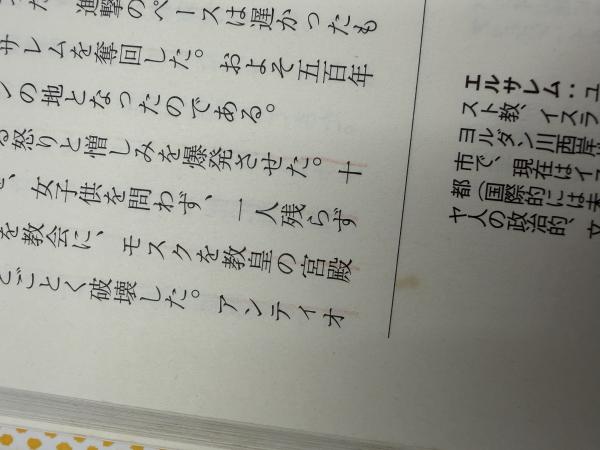 進撃のペースは遅かったも
サレムを奪回した。およそ五百年
ンの地となったのである。
る怒りと憎しみを爆発させた。十
、女子供を問わず、一人残らず
を教会に、モスクを教皇の宮殿
ごとく破壊した。アンティオ
エルサレム：ユ
スト教、イスラ
ヨルダン川西岸
市で、現在はイ
都（国際的には未
ヤ人の政治的、文